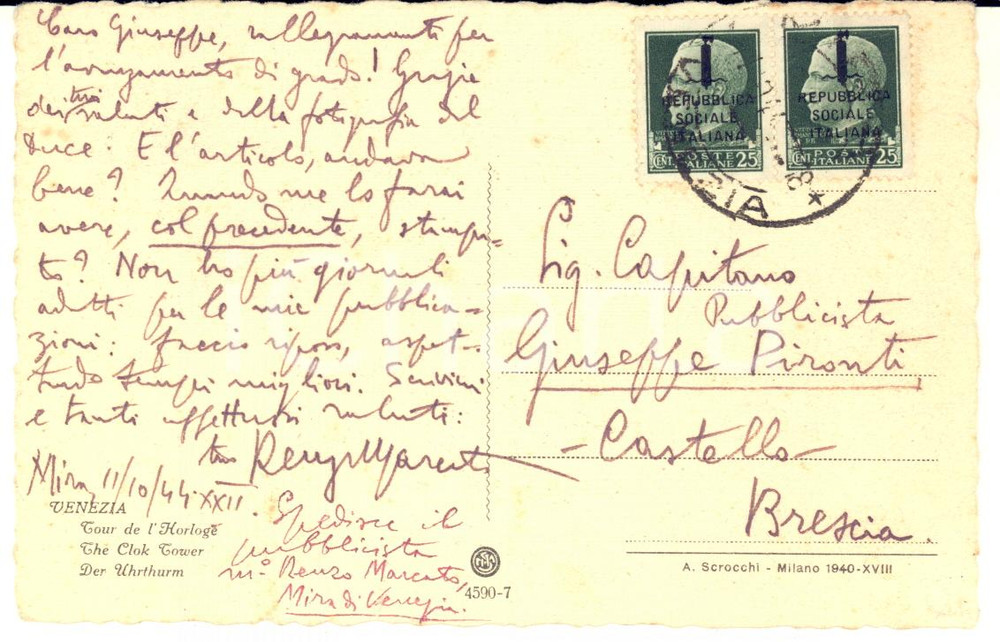 Caro Giuseppe, rallegramenti per
l'avanzamento di grado! Grazie
dei tuoi saluti e della fotografia del
Duce. E l'articolo, andava
bene? Quando me lo farai
avere, col precedente, stampa-
to? Non ho più giornali
adatti per le mie pubblica-
zioni: faccio riposo, aspet-
tando tempi migliori. Scrivimi
e tanti affettuosi saluti:
tuo Renzo Marcato
Mira, 11/10/44-XXII.
VENEZIA
Tour de l'Horloge
The Clok Tower
Der Uhrthurm
Spedisce il
pubblicista
m° Renzo Marcato,
Mira di Venezia.
4590-7
REPUBBLICA
SOCIALE
ITALIANA
CENT. POSTE ITALIANE 25
REPUBBLICA
SOCIALE
ITALIANA
CENT. POSTE ITALIANE 25
Sig. Capitano
Pubblicista
Giuseppe Pironti
-Castello-
Brescia.
A. Scrocchi - Milano 1940-XVIII